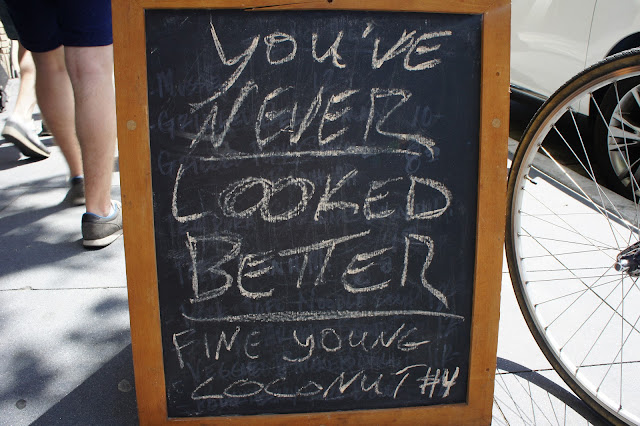 YOU'VE
NEVER
LOOKED
BETTER
FINE YOUNG
COCONUT #4